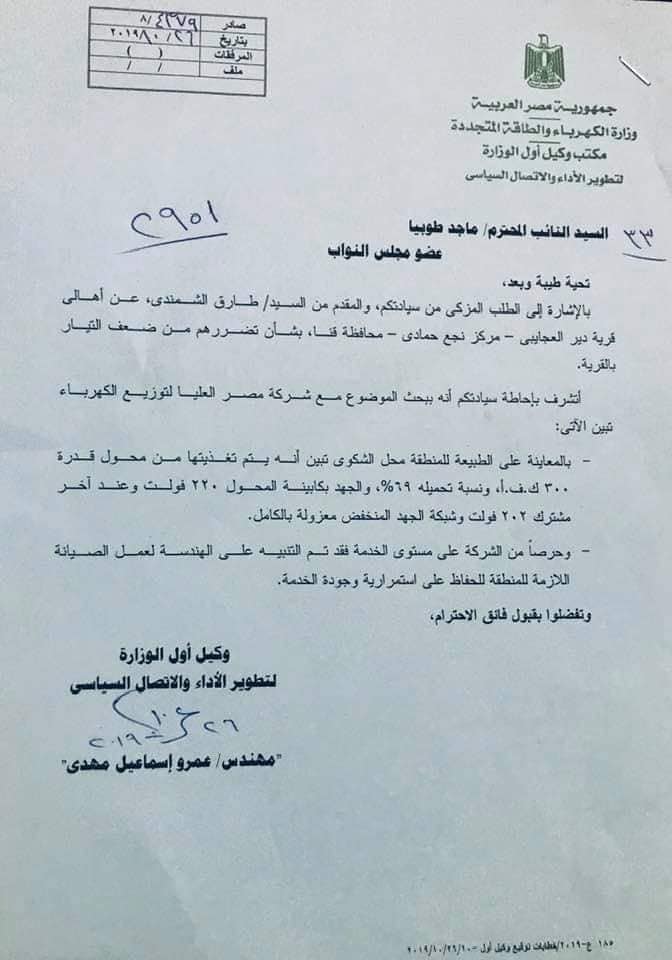 صادر ٨/٤٣٧٩
بتاريخ ٢٠١٩/١٠/٢٦
المرفقات ( )
ملف / /
جمهورية مصر العربية
وزارة الكهرباء والطاقة المتجددة
مكتب وكيل أول الوزارة
لتطوير الأداء والاتصال السياسى
٢٩٥١
٣٣
السيد النائب المحترم/ ماجد طوبيا
عضو مجلس النواب
تحية طيبة وبعد،
بالإشارة إلى الطلب المزكى من سيادتكم، والمقدم من السيد/ طارق الشمندى، عن أهالى
قرية دير العجايبى – مركز نجع حمادى – محافظة قنا، بشأن تضررهم من ضعف التيار
بالقرية.
أتشرف بإحاطة سيادتكم أنه ببحث الموضوع مع شركة مصر العليا لتوزيع الكهرباء
تبين الآتى:
- بالمعاينة على الطبيعة للمنطقة محل الشكوى تبين أنه يتم تغذيتها من محول قدرة
٣٠٠ ك.ف.أ، ونسبة تحميله ٦٩%، والجهد بكابينة المحول ٢٢٠ فولت وعند آخر
مشترك ٢٠٢ فولت وشبكة الجهد المنخفض معزولة بالكامل.
- وحرصاً من الشركة على مستوى الخدمة فقد تم التنبيه على الهندسة لعمل الصيانة
اللازمة للمنطقة للحفاظ على استمرارية وجودة الخدمة.
وتفضلوا بقبول فائق الاحترام،
وكيل أول الوزارة
لتطوير الأداء والاتصال السياسى
٢٦
٢٠١٩
"مهندس/ عمرو إسماعيل مهدى"
١٨٥ ع-٢٠١٩/خطابات توقيع وكيل أول -٢٠١٩/١٠/٢٦/١٠